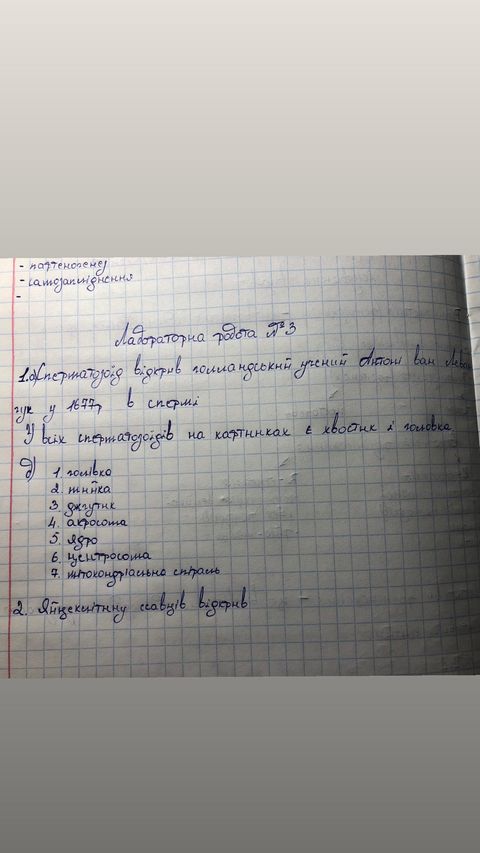 - партеногенез
- самозапліднення
-
Лабораторна робота №3
1. а) Сперматозоїд відкрив голландський учений Антоні ван Левен
гук у 1677р в спермі
У всіх сперматозоїдів на картинках є хвостик і головка
д) 1. голівка
2. шийка
3. джгутик
4. акросома
5. ядро
6. центросома
7. мітохондріальна спіраль
2. Яйцеклітину ссавців відкрив